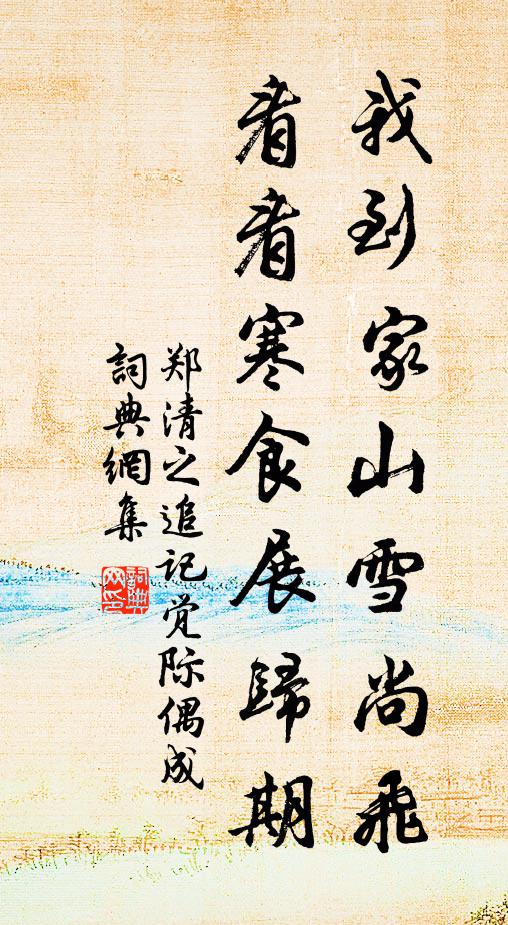 我到家山雪尚飛
看看寒食展歸期
郑清之追记觉际偶成
詞典網集